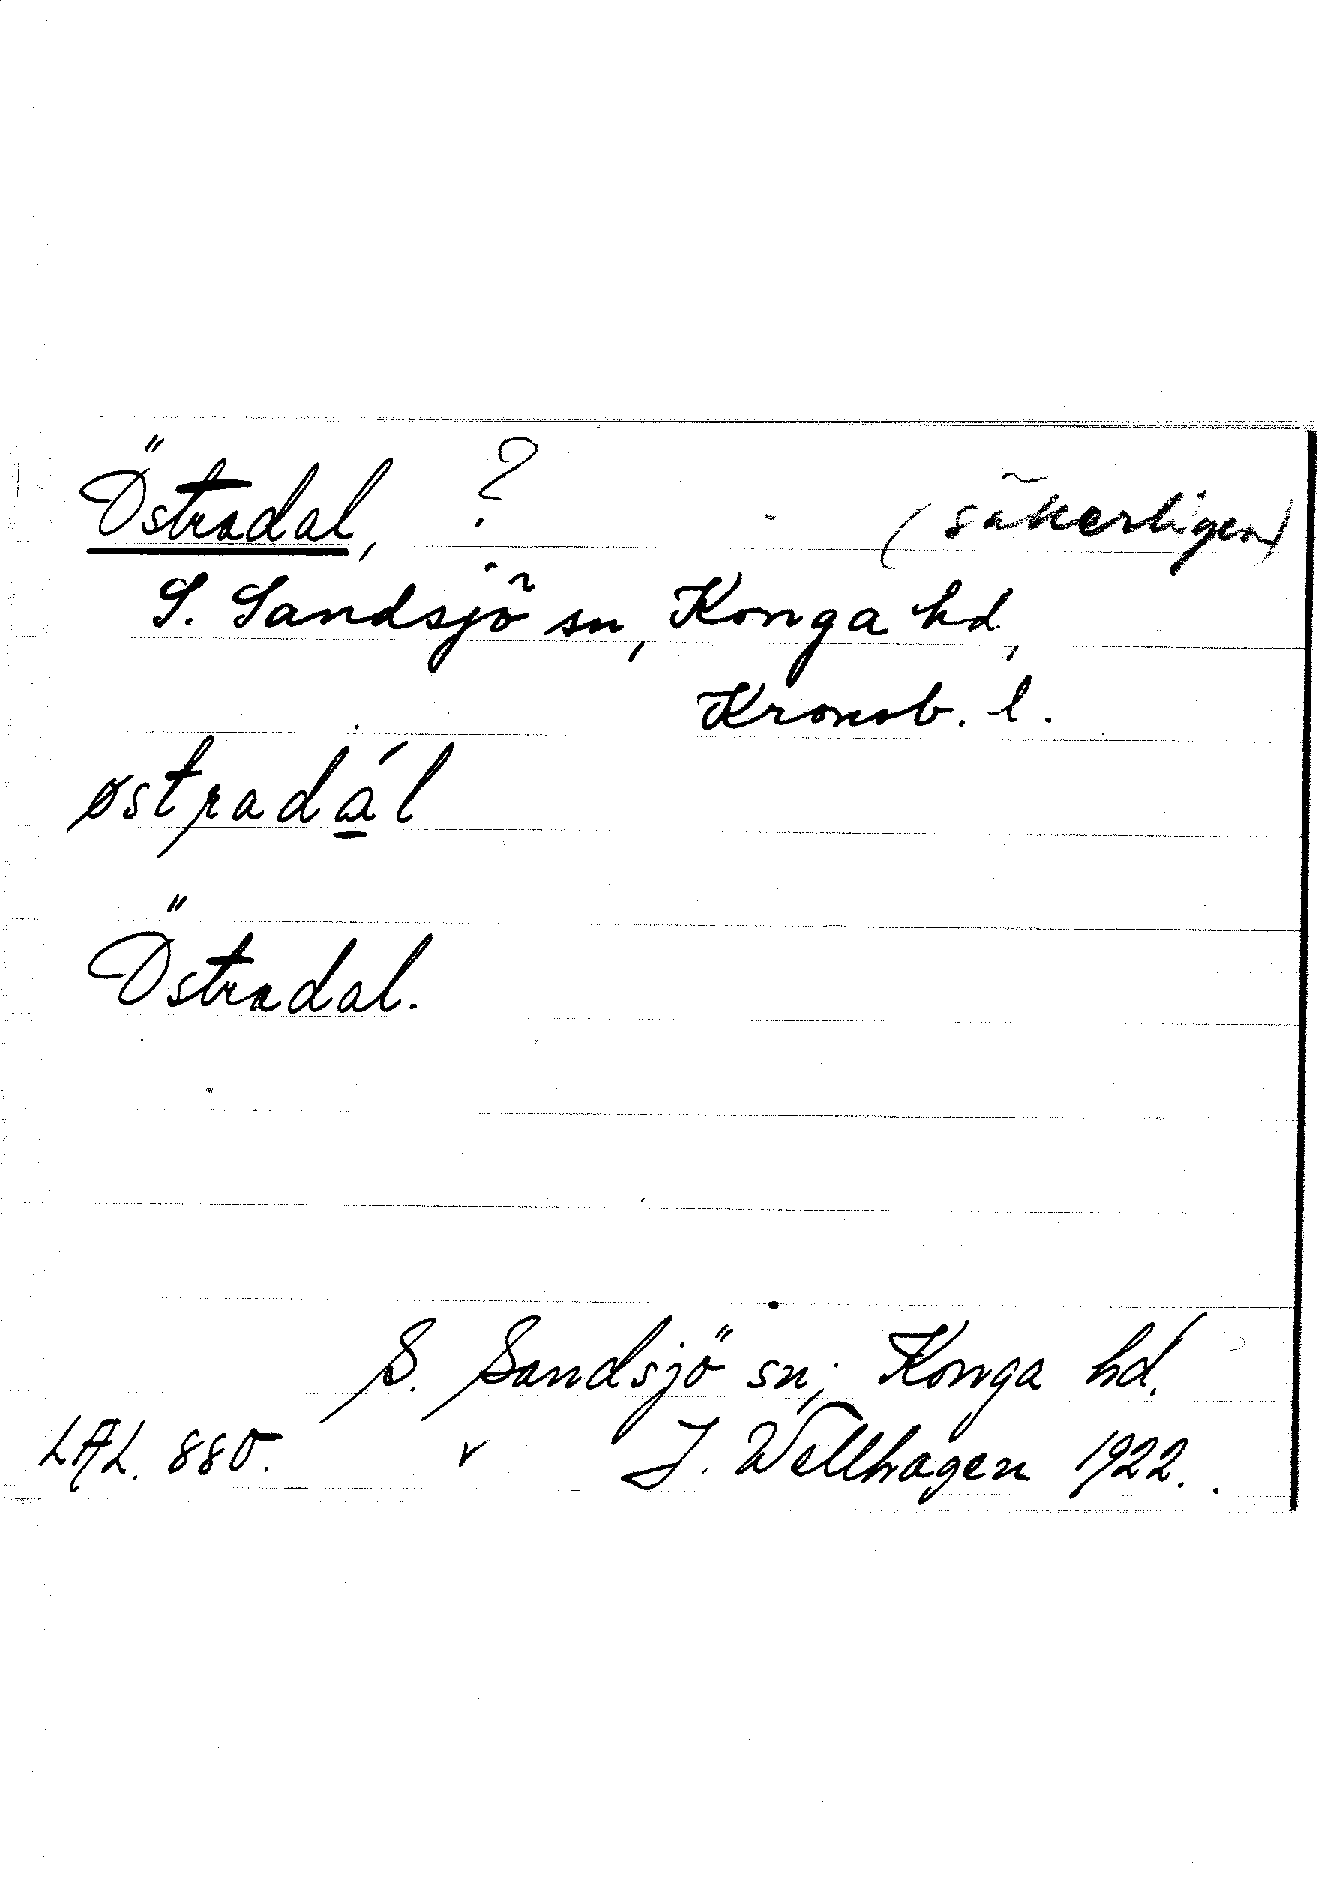 Östradal, ? (säkerligen)
S. Sandsjö sn, Konga hd,
Kronob. l.
østradál
Östradal.
S. Sandsjö sn; Konga hd.
LAL. 880. v J. Wellhagen 1922.